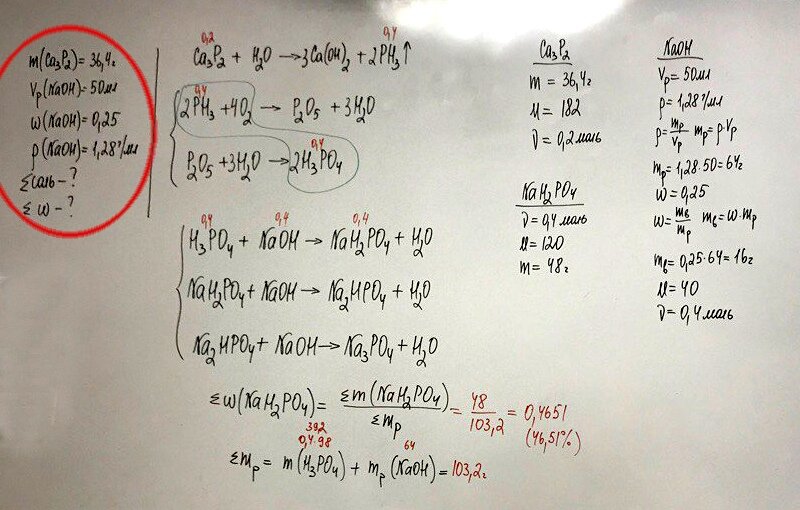 m(Ca₃P₂) = 36,4г
Vр(NaOH) = 50мл
ω(NaOH) = 0,25
ρ(NaOH) = 1,28 г/мл
Σсоль - ?
Σ ω - ?
0,2 0,4
Ca₃P₂ + H₂O → 3Ca(OH)₂ + 2PH₃↑
0,4
2PH₃ + 4O₂ → P₂O₅ + 3H₂O
0,4
P₂O₅ + 3H₂O → 2H₃PO₄
0,4 0,4 0,4
H₃PO₄ + NaOH → NaH₂PO₄ + H₂O
NaH₂PO₄ + NaOH → Na₂HPO₄ + H₂O
Na₂HPO₄ + NaOH → Na₃PO₄ + H₂O
Σω(NaH₂PO₄) = Σm(NaH₂PO₄)/Σmр = 48/103,2 = 0,4651
(46,51%)
39,2
0,4·98 64
Σmр = m(H₃PO₄) + mр(NaOH) = 103,2г
Ca₃P₂
m = 36,4г
μ = 182
ν = 0,2моль
NaH₂PO₄
ν = 0,4моль
μ = 120
m = 48г
NaOH
Vр = 50мл
ρ = 1,28 г/мл
ρ = mр/Vр mр = ρ·Vр
mр = 1,28·50 = 64г
ω = 0,25
ω = mв/mр mв = ω·mр
mв = 0,25·64 = 16г
μ = 40
ν = 0,4моль